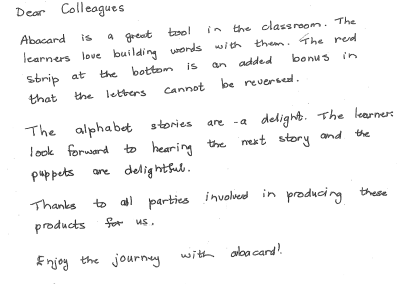 Dear Colleagues
Abacard is a great tool in the classroom. The
learners love building words with them. The red
strip at the bottom is an added bonus in
that the letters cannot be reversed.
The alphabet stories are a delight. The learners
look forward to hearing the next story and the
puppets are delightful.
Thanks to all parties involved in producing these
products for us.
Enjoy the journey with abacard!